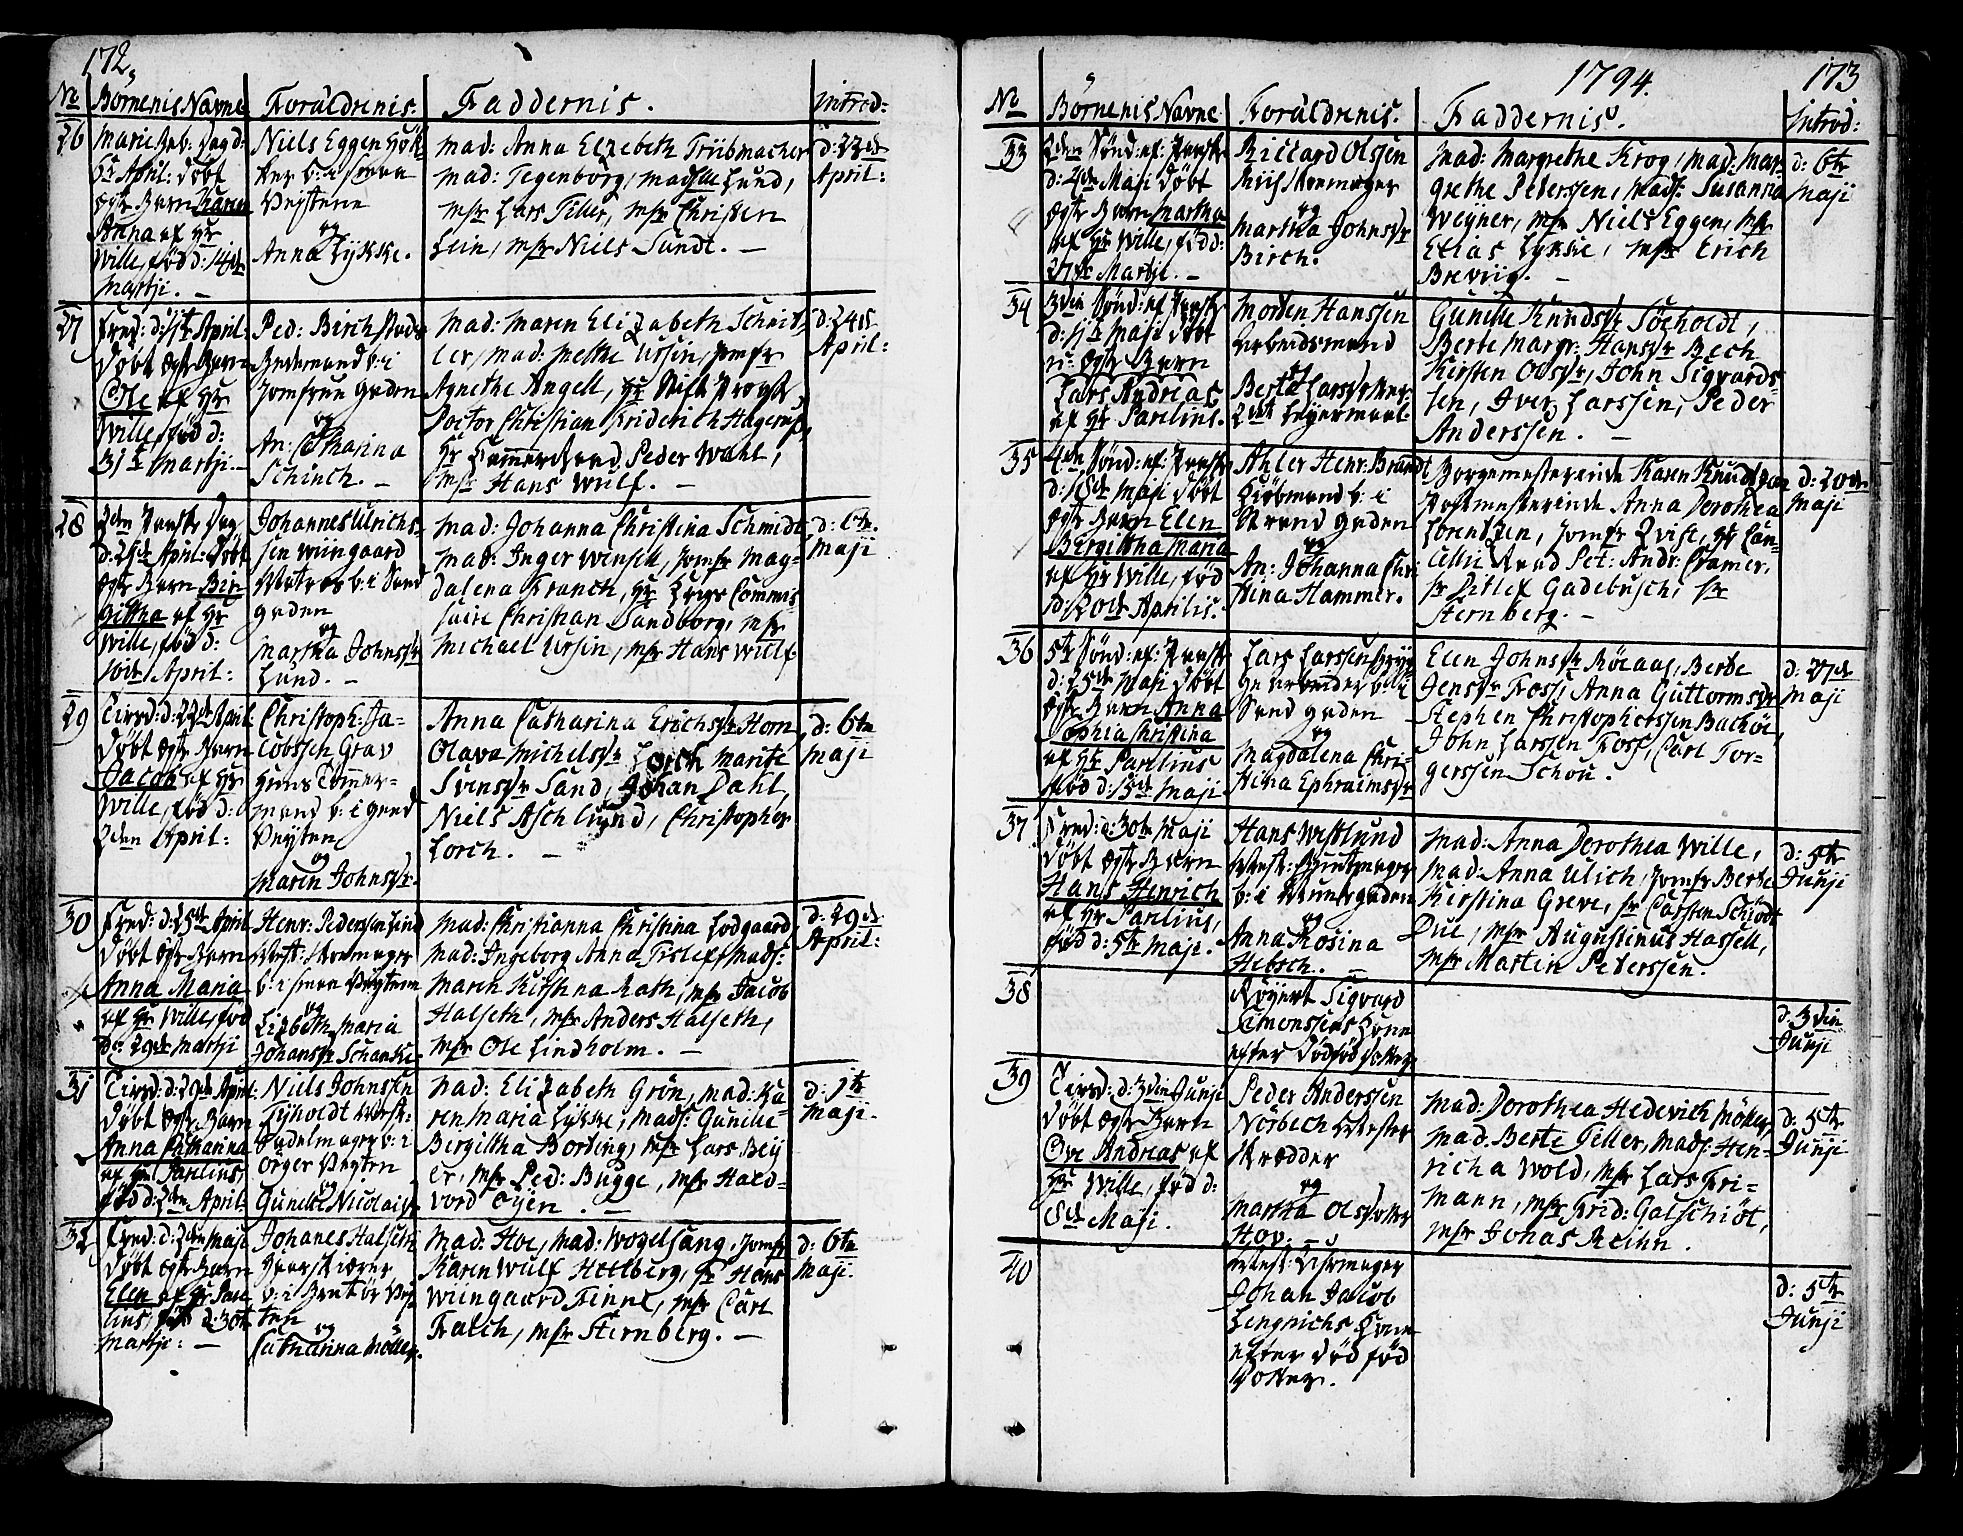 172,
No
Börnenes Navne
Forældrenis.
Faddernis.
introd:
26
Marie Beb: Dag d:
6te April: döbt
ægte Barn Karen
Anna af Hr
Wille, föd d: 14de
Martji. —
Niels Eggen Hök-
ker b: i smaa
Vejtene
og
Anna Lykke.
Mad: Anna Elzebeth Trübmacher
Mad: Tegenborg, Madslle Lund,
Msr Lars Tiller, Msr Christen
Lein, Msr Niels Sundt. —
d: 23de
April:
27
Fred: d: 11te April:
döbt ægte Barn
Ole af Hr
Wille, föd d:
31te Martji. —
Ped: Birch
b: i
Jomfrue Gaden
og
An: Catharina
Schinck. —
Mad: Maren Elizabeth Schnit-
ler, Mad: Methe Ursin, Jomfr
Agnethe Angell, Hr Stift Provst,
Doctor Christian Friderich Hagerup,
Hr Cammer Raad Peder Wahl,
Msr Hans Wulf. —
d: 24de
April:
28
2den Paaske Dag
d: 21de April: döbt
ægte Barn Bir-
gittha af Hr
Wille, föd d:
10de April:
Johannes Ulrichs-
sen Wiingaard
b: i Sand
gaden
og
Martha Johnsdr
Lund. —
Mad: Johanna Christina Schmidt,
Mad: Inger Winsell, Jomfr Mag-
dalena Franck, Hr Krigs Commis
saire Christian Sandborg, Msr
Michael Ursin, Msr Hans Wulf
d: 6te
Maji
29
Tirsd: d: 22de April
döbt ægte Barn
Jacob af Hr
Wille, föd d:
2den April:
Christoph: Ja-
cobssen Grav
Huus Tömmer-
mand b: i
Veyten
og
Maren Johnsdr.
Anna Catharina Erichsdr Horn
Olava Michelsdr Lorck Marite
Svensdr Sand, Johan Dahl,
Niels Asch Lund, Christopher
Lorck. —
d: 6te
Maji
30
Fred: d: 25de April
döbt ægte Barn
Anna Maria
af Hr Wille, föd
d: 29de Martji
Henr: Pederssen Lind
Mest: Skomager
b: i smaa Veytene
og
Lizbeth Maria
Johansdr Schanke
Mad: Christianna Christina Lodgaard
Mad: Ingeborg Anna Fislef, Mads:
Maren Kirstina Rath, Msr Jacob
Halseth, Msr Anders Halseth,
Msr Ole Lindholm. —
d: 29de
April:
31
Tirsd: d: 29de April:
döbt ægte Barn
Anna Catharina
af Hr Parelius,
föd d: 2den April
Niels Johnssen
Tyholdt Mest:
Sadelmager b: i
Örger Veyten
og
Gunild Nicolaisdr
Mad: Elizabeth Grön, Mad: Ka-
ren Maria Lykke, Mads: Gunille
Bergittha Bording, Msr Lars Bey
er, Msr Ped: Bugge, Msr Hald-
vord Öyen. —
d: 1te
Maji.
32
Fred: d: 2den Maji
döbt ægte Barn
Elen af Hr Pare
lius, föd d: 30te
Martji: —
Johanes Halseth
b: i Vey
ten
og
Catharina Möller.
Mad: Hoe, Mad: Vogelsang, Jomfr
Karen Wulf Heelberg, Sr Hans
Wiingaard Finne, Msr Carl
Falch, Msr Sternberg. —
d: 6te
Maji.
1794.
173
No
Börnenis Navne
Forældrenis.
Faddernis.
Introd:
33
2den Sönd: ef: Paaske
d: 4de Maji döbt
ægte Barn Martha
af Hr Wille, född:
27de Martji. —
Riccard Olssen
Riis Skomager
og
Martha Johnsdr
Birch.
Mad: Margrethe Krog, Mad: Mar-
grethe Peterssen, Mads: Susanna
Weyner, Msr Niels Eggen, Msr
Elias Lykke, Msr Erich
Breviig. —
d: 6te
Maji
34
3die Sönd: ef: Paaske
d: 11te Maji döbt
u: ægte Barn
Lars Andreas
af Hr Parelius.
Morten Hanssen
Arbeidsmand
Berte Larsdr
2det Leyermaal
Gunille Knudsdr Söeholdt,
Berte Margr: Hansdr Bech
Kirsten Olsdr, John Sigvards
sen, Iver Larssen, Peder
Anderssen. —
35
4de Sönd: ef: Paaske
d: 18de Maji döbt
ægte Barn Elen
Bergittha Maria
af Hr Wille, föd
d: 20de Aprilis.
Ahler Henr: Brandt
Kiöbmand b: i
Strand gaden
og
An: Johanna Chri
stina Hammer.
Borgemesterinde Karen Knudtzon
Postmesterinde Anna Dorothea
Lorentzen, Jomfr Qvist, Hr Can-
cellie Raad Pet: Andr: Cramer,
Sr Ditlef Gadebusch, Sr
Sternberg. —
d: 20de
Maji
36
5te Sönd: ef: Paaske
d: 25de Maji döbt
ægte Barn Anna
Sophia Christina
af Hr Parelius
föd d: 15de Maji
Lars Larssen
arbeider b: i
Sand gaden
og
Magdalena Chri-
stina Ephraimsdr
Elen Johnsdr Röeaas, Berte
Jensdr Foss, Anna Guttormsdr
Stephen Christopherssen Backöe,
John Larssen Foss, Carl Tor-
gerssen Schou.
d: 27de
Maji
37
Fred: d: 30te Maji
döbt ægte Barn
Hans Henrich
af Hr Parelius,
föd d: 5te Maji.
Hans Westlund
Mest: Buntmager
b: i Munkegaden
og
Anna Rosina
Hebsch. —
Mad: Anna Dorothea Wille,
Mad: Anna Ulich, Jomfr Berte
Kirstina Greve, Sr Carsten Schiödt
Due, Msr Augustinus Hassell,
Msr Martin Peterssen.
d: 5te
Junji
38
Röyert Sigvard
Simonssens Kone
efter dödföd Datter
d: 3die
Junji
39
Tirsd: d: 3die Junji
döbt ægte Barn
Ove Andreas af
Hr Wille, föd d:
8de Maji.
Peder Anderssen
Norbech Mester
Skrædder
og
Martha Olsdatter
Hov. —
Mad: Dorothea Hedevich Möller
Mad. Berte Tiller, Mads: Hen-
richa Wold, Msr Lars Fri-
mann, Msr Frid: Galschiöt,
Msr Johas Reihn.
d: 5te
Junji
40
Mest:
Johan Jacob
Lengnichs Kone
efter död föd
Datter.
d: 5te
Junji